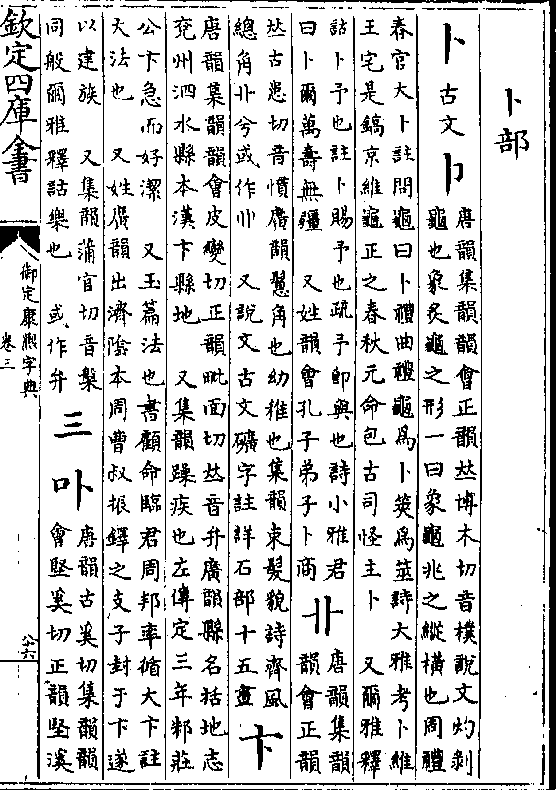 卜部
卜 古文 卜 唐韻集韻韻會正韻𠀤博木切音樸說文灼剝
龜也象炙龜之形一曰象龜兆之縱橫也周禮
春官大卜註問龜曰卜禮曲禮龜爲卜筴爲筮詩大雅考卜維
王宅是鎬京維龜正之春秋元命包古司怪主卜 又爾雅釋
詁卜予也註卜賜予也疏予卽與也詩小雅君
曰卜爾萬壽無疆 又姓韻會孔子弟子卜商
丱 唐韻集韻
韻會正韻
𠀤古患切音慣廣韻鬌角也幼稚也集韻束髮貌詩齊風
總角丱兮或作丱 又說文古文礦字註詳石部十五畫
卞
唐韻集韻韻會皮變切正韻毗面切𠀤音弁廣韻縣名括地志
兖州泗水縣本漢卞縣地 又集韻躁疾也左傳定三年邾莊
公卞急而好潔 又玉篇法也書顧命臨君周邦率循大卞註
大法也 又姓廣韻出濟隂本周曹叔振鐸之支子封于卞遂
以建族 又集韻蒲官切音槃
同般爾雅釋詁樂也 或作弁
三
卟 唐韻古奚切集韻韻
會堅奚切正韻堅溪
欽定四庫全書
御定康熙字典
卷三
八六